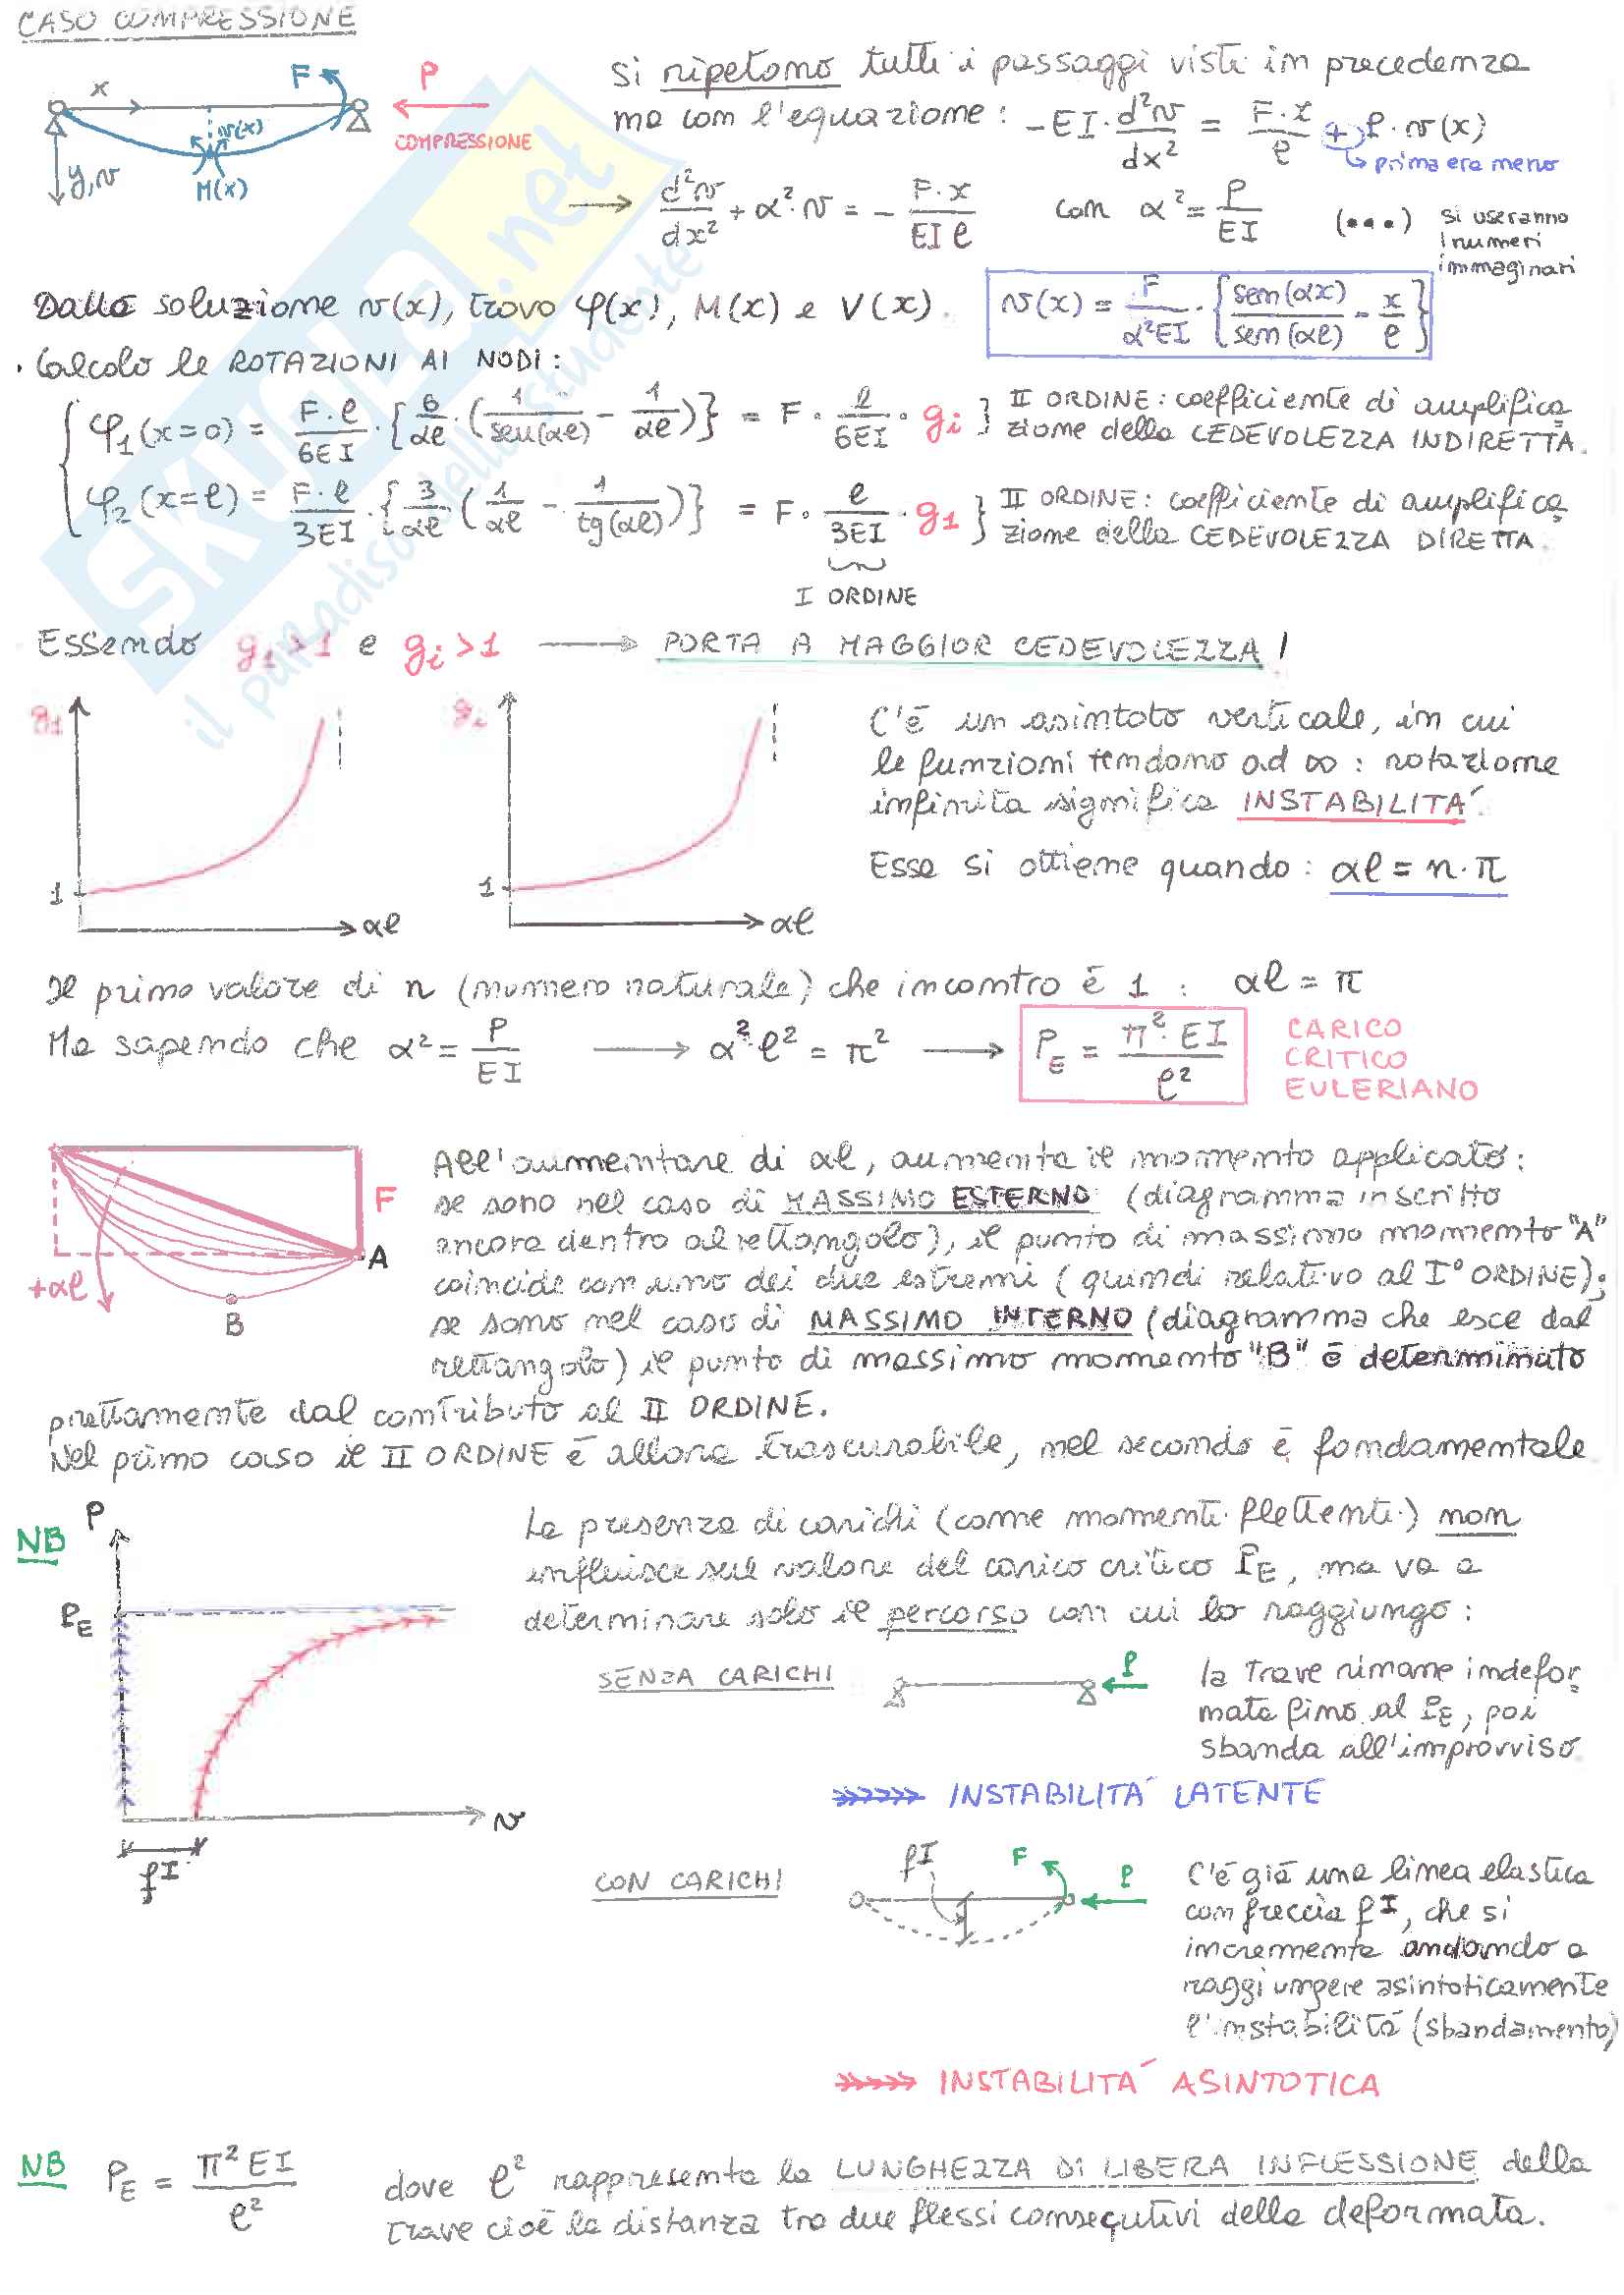 CASO COMPRESSIONE
x F P
COMPRESSIONE
v(x)
y,v M(x)
Si ripetono tutti i passaggi visti in precedenza
ma con l'equazione: -EI·d²v/dx² = F·x/ℓ + P·v(x)
prima era meno
→ d²v/dx² + α²·v = - F·x/EIℓ con α² = P/EI (•••) si useranno
i numeri
immaginari
Dalla soluzione v(x), trovo φ(x), M(x) e V(x). v(x) = F/α²EI · {sen(αx)/sen(αℓ) - x/ℓ}
· Calcolo le ROTAZIONI AI NODI:
φ₁(x=0) = F·ℓ/6EI · {6/αℓ · (1/sen(αℓ) - 1/αℓ)} = F · ℓ/6EI · gi } II ORDINE: coefficiente di amplifica
zione della CEDEVOLEZZA INDIRETTA.
φ₂(x=ℓ) = F·ℓ/3EI · {3/αℓ (1/αℓ - 1/tg(αℓ))} = F · ℓ/3EI · g1 } II ORDINE: coefficiente di amplifica
zione della CEDEVOLEZZA DIRETTA.
I ORDINE
Essendo g1 > 1 e gi > 1 → PORTA A MAGGIOR CEDEVOLEZZA!
g1 1 αℓ
gi 1 αℓ
C'è un asintoto verticale, in cui
le funzioni tendono ad ∞: rotazione
infinita significa INSTABILITÀ.
Essa si ottiene quando: αℓ = n·π
Il primo valore di n (numero naturale) che incontro è 1: αℓ = π
Ma sapendo che α² = P/EI → α²·ℓ² = π² → P_E = π²·EI/ℓ² CARICO
CRITICO
EULERIANO
F
A
+αℓ
B
All'aumentare di αℓ, aumenta il momento applicato:
se sono nel caso di MASSIMO ESTERNO (diagramma inscritto
ancora dentro al rettangolo), il punto di massimo momento "A"
coincide con uno dei due estremi (quindi relativo al I° ORDINE);
se sono nel caso di MASSIMO INTERNO (diagramma che esce dal
rettangolo) il punto di massimo momento "B" è determinato
prettamente dal contributo al II ORDINE.
Nel primo caso il II ORDINE è allora trascurabile, nel secondo è fondamentale
NB
P
P_E
v
f^I
La presenza di carichi (come momenti flettenti) non
influisce sul valore del carico critico P_E, ma va a
determinare solo il percorso con cui lo raggiungo:
SENZA CARICHI P
la trave rimane indefor
mata fino al P_E, poi
sbanda all'improvviso
INSTABILITÀ LATENTE
CON CARICHI f^I F P
C'è già una linea elastica
con freccia f^I, che si
incrementa andando a
raggiungere asintoticamente
l'instabilità (sbandamento)
INSTABILITÀ ASINTOTICA
NB P_E = π²EI/ℓ² dove ℓ² rappresenta la LUNGHEZZA DI LIBERA INFLESSIONE della
trave cioè la distanza tra due flessi consecutivi della deformata.
SKUOLA.net
il paradiso dello studente